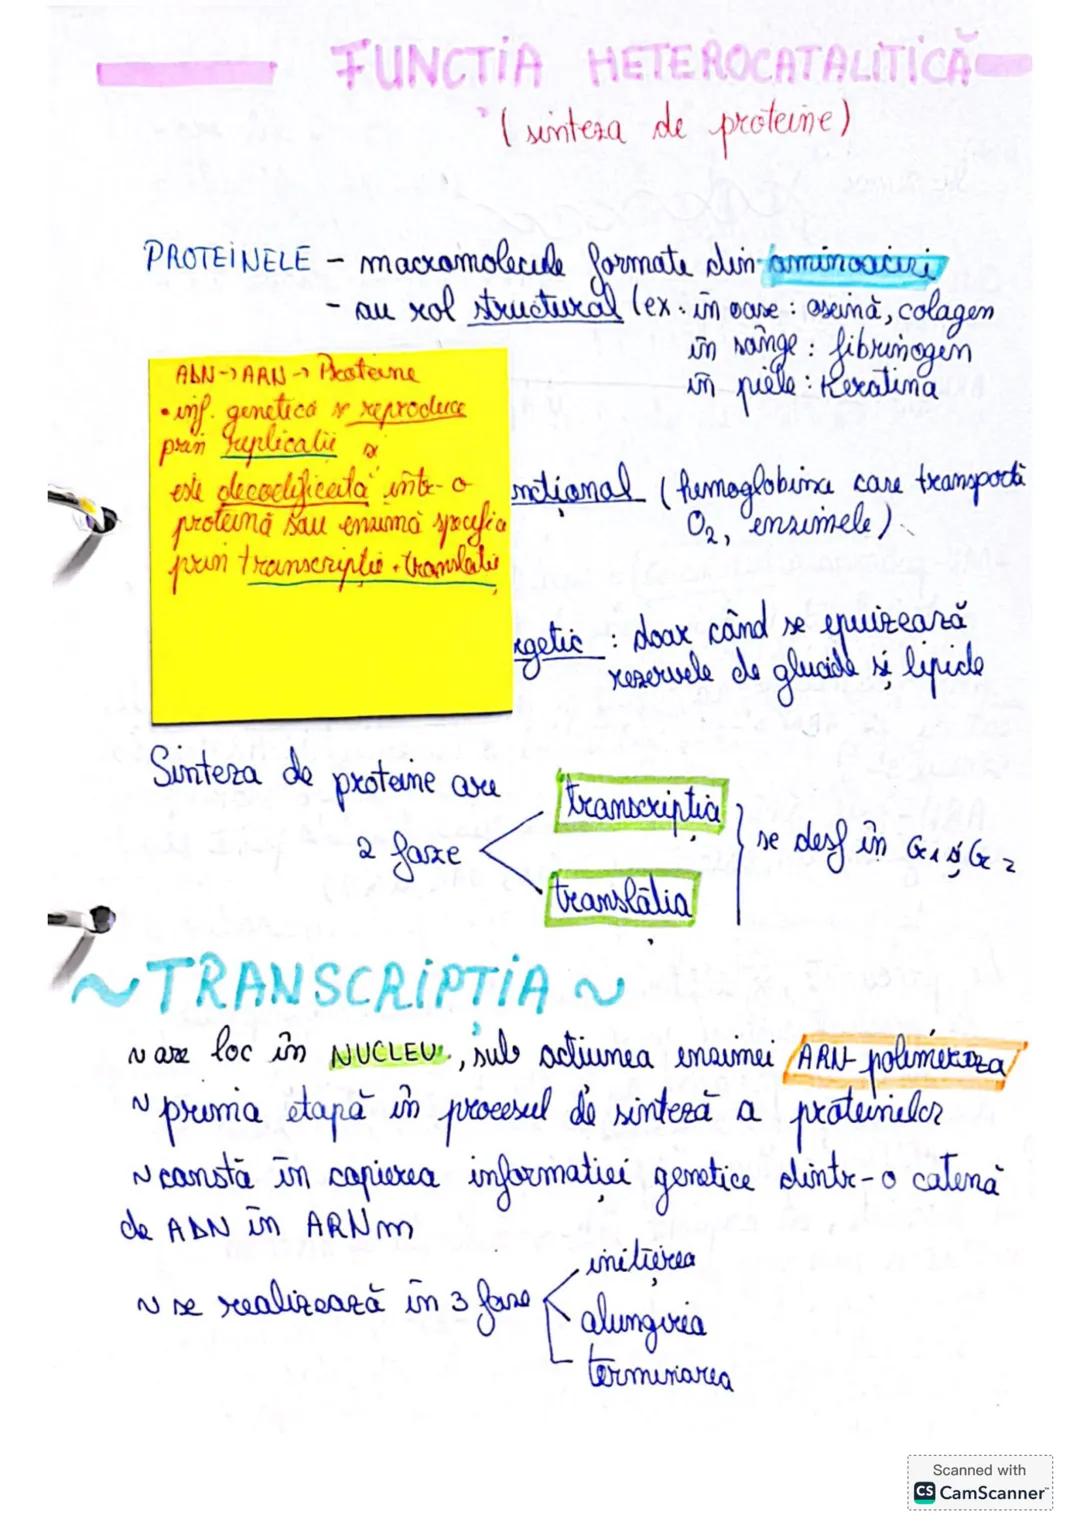 FUNCTIA HETEROCATALITICĂ
(sinteza de proteine)
PROTEINELE - macromolecule formate din aminoacizi
- au rol structural (ex: în oase: oseină, colagen
în sânge: fibrinogen
în piele: Keratina
ADN → ARN → Proteine
• inf. genetică se reproduce
prin replicații și
este decodificată într-o
proteină sau enzimă specifică
prin transcripție + translație
ncțional (hemoglobina care transportă
O2, enzimele)
rgetic: doar când se epuizează
rezervele de glucide și lipide
Sinteza de proteine are
2 faze
transcripția
translăția
se desf în G1 și G2
~TRANSCRIPȚIA~
~ are loc în NUCLEU, sub acțiunea enzimei ARN-polimeraza
~ prima etapă în procesul de sinteză a proteinelor
~ constă în copierea informației genetice dintr-o catenă
de ADN în ARNm
~ se realizează în 3 faze
inițierea
alungirea
terminarea
Scanned with
CS CamScanner